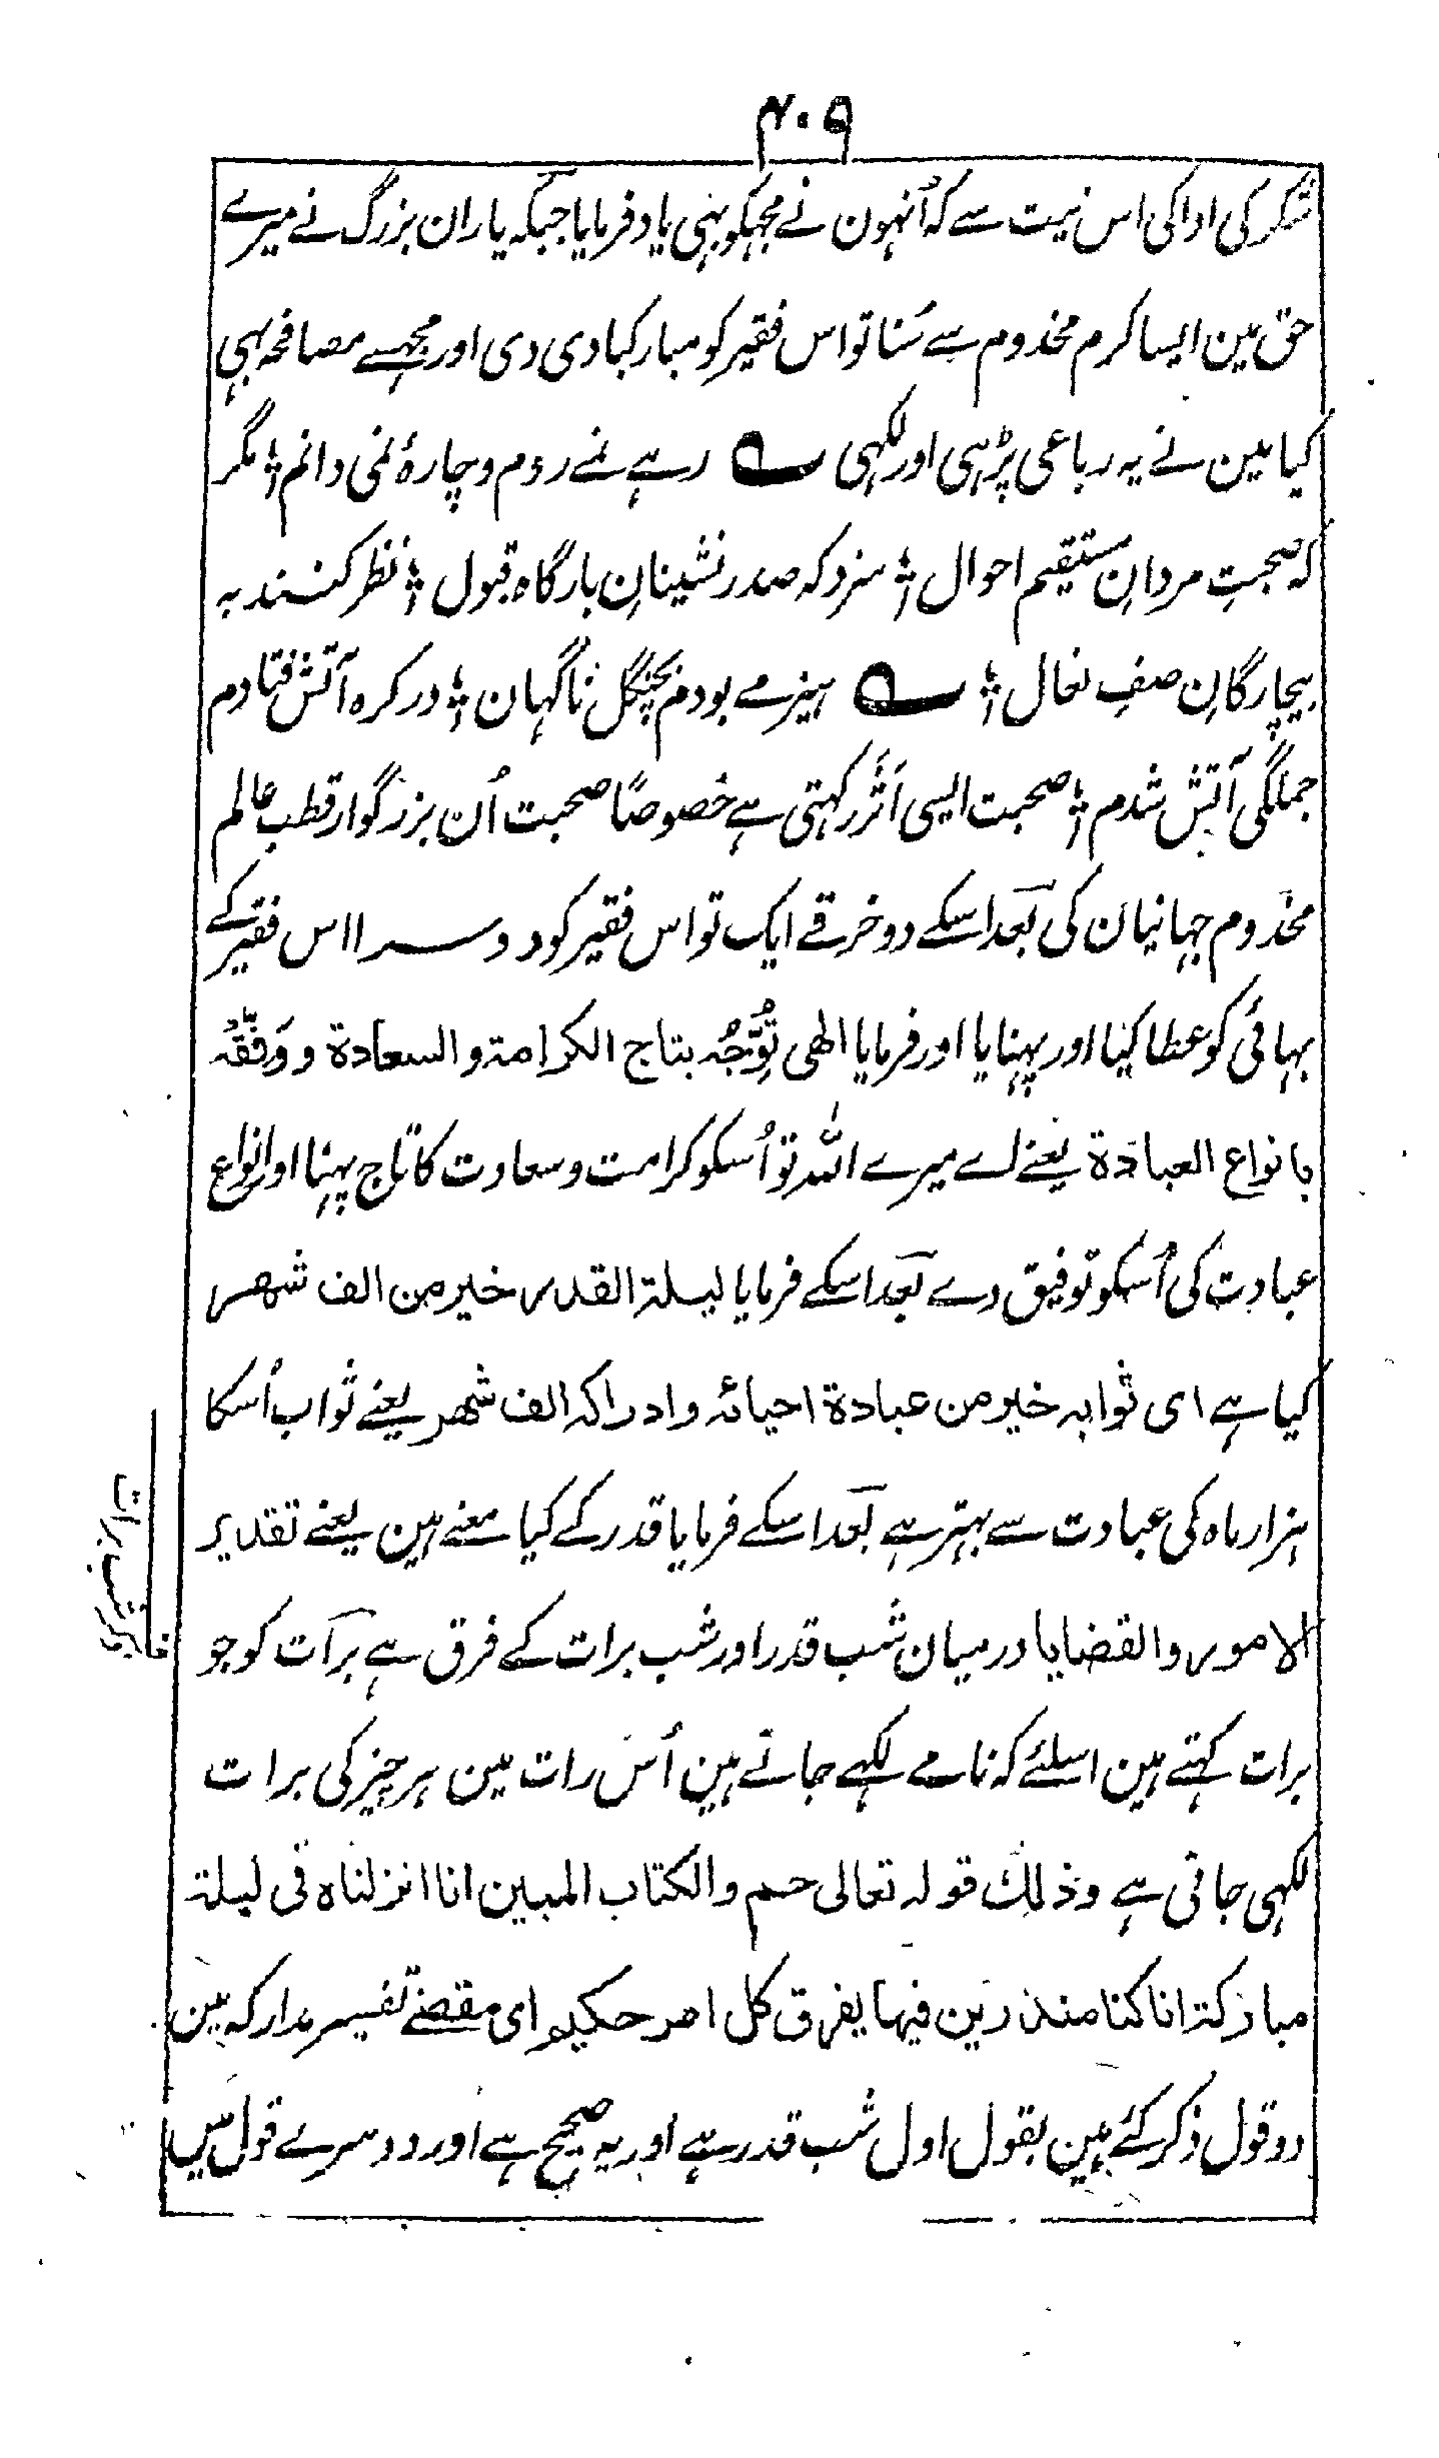 ۴۰۹
شکر کی ادا کی اس نیت سے کہ اُنہون نے مجہکو بہی یاد فرمایا جبکہ یاران بزرگ نے میرے
حق مین ایسا کرم مخدوم سے سُنا تو اس فقیر کو مبارکبادی دی اور مجہسے مصافحہ بہی
کیا مین نے یہ رباعی پڑہی اور لکہی ؎ رہے نمے روم و چارۂ نمی دانم ؛ مگر
کہ صحبتِ مردانِ مستقیم احوال ؛ سزد کہ صدر نشینانِ بارگاہ قبول ؛ نظر کنند بہ
بیچارگانِ صفِ نعال ؛ ؎ ہیزمے بودم بچنگل ناگہان ؛ در کرہ آتش فتادم
جملگی آتش شدم ؛ صحبت ایسی اَثَر رکہتی ہے خصوصاً صحبت اُن بزرگوار قطب عالم
مخدوم جہانیان کی بعد اسکے دو خرقے ایک تو اس فقیر کو دوسرا اس فقیر کے
بہائی کو عطا کیا اور پہنایا اور فرمایا الھی تُوِّجُہ بتاج الکرامۃ و السعادۃ و وَفِّقْہُ
بانواع العبادۃ یعنے اے میرے اللہ تو اُسکو کرامت و سعادت کا تاج پہنا اور انواع
عبادت کی اُسکو توفیق دے بعد اسکے فرمایا لیلۃ القدر خیر من الف شھر
کیا ہے ای ثوابہ خیر من عبادۃ احیائہ وادراکہ الف شھر یعنے ثواب اُسکا
ہزار ماہ کی عبادت سے بہتر ہے بعد اسکے فرمایا قدر کے کیا معنے ہین یعنے تقدیر
الامور والقضایا درمیان شب قدر اور شب برات کے فرق ہے برآت کو جو
برات کہتے ہین اسلئے کہ نامے لکہے جاتے ہین اُس رات مین ہر چیز کی برات
لکہی جاتی ہے وذلک قولہ تعالی حم والکتاب المبین انا انزلناہ فی لیلۃ
مبارکۃ انا کنا منذرین فیھا یفرق کل امر حکیم ای مقضے تفسیر مدارکہ مین
دو قول ذکر کئے ہین بقول اول شب قدر ہے اور یہ صحیح ہے اور دوسرے قول میں
ذکر شب برات